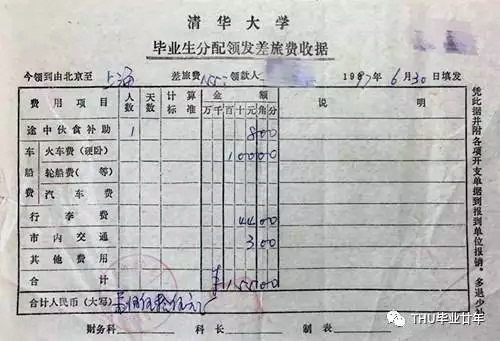 清华大学
毕业生分配领发差旅费收据
今领到由北京至 上海 差旅费 155 领款人 1997年6月30日填发
费用项目 人数 天数 计算标准 金额 说明
万千百十元角分
途中伙食补助 1 8 00
车船费 火车费(硬卧) 1 0 0 00
轮船费( 等)
汽车费
行李费 44 00
市内交通 3 00
其他费用
合计 ¥ 1 5 5 00
合计人民币(大写) 壹佰伍拾伍元
财务科 科长 制表
凭此据并附各项开支单据到报到单位报销。多退少
THU毕业廿年